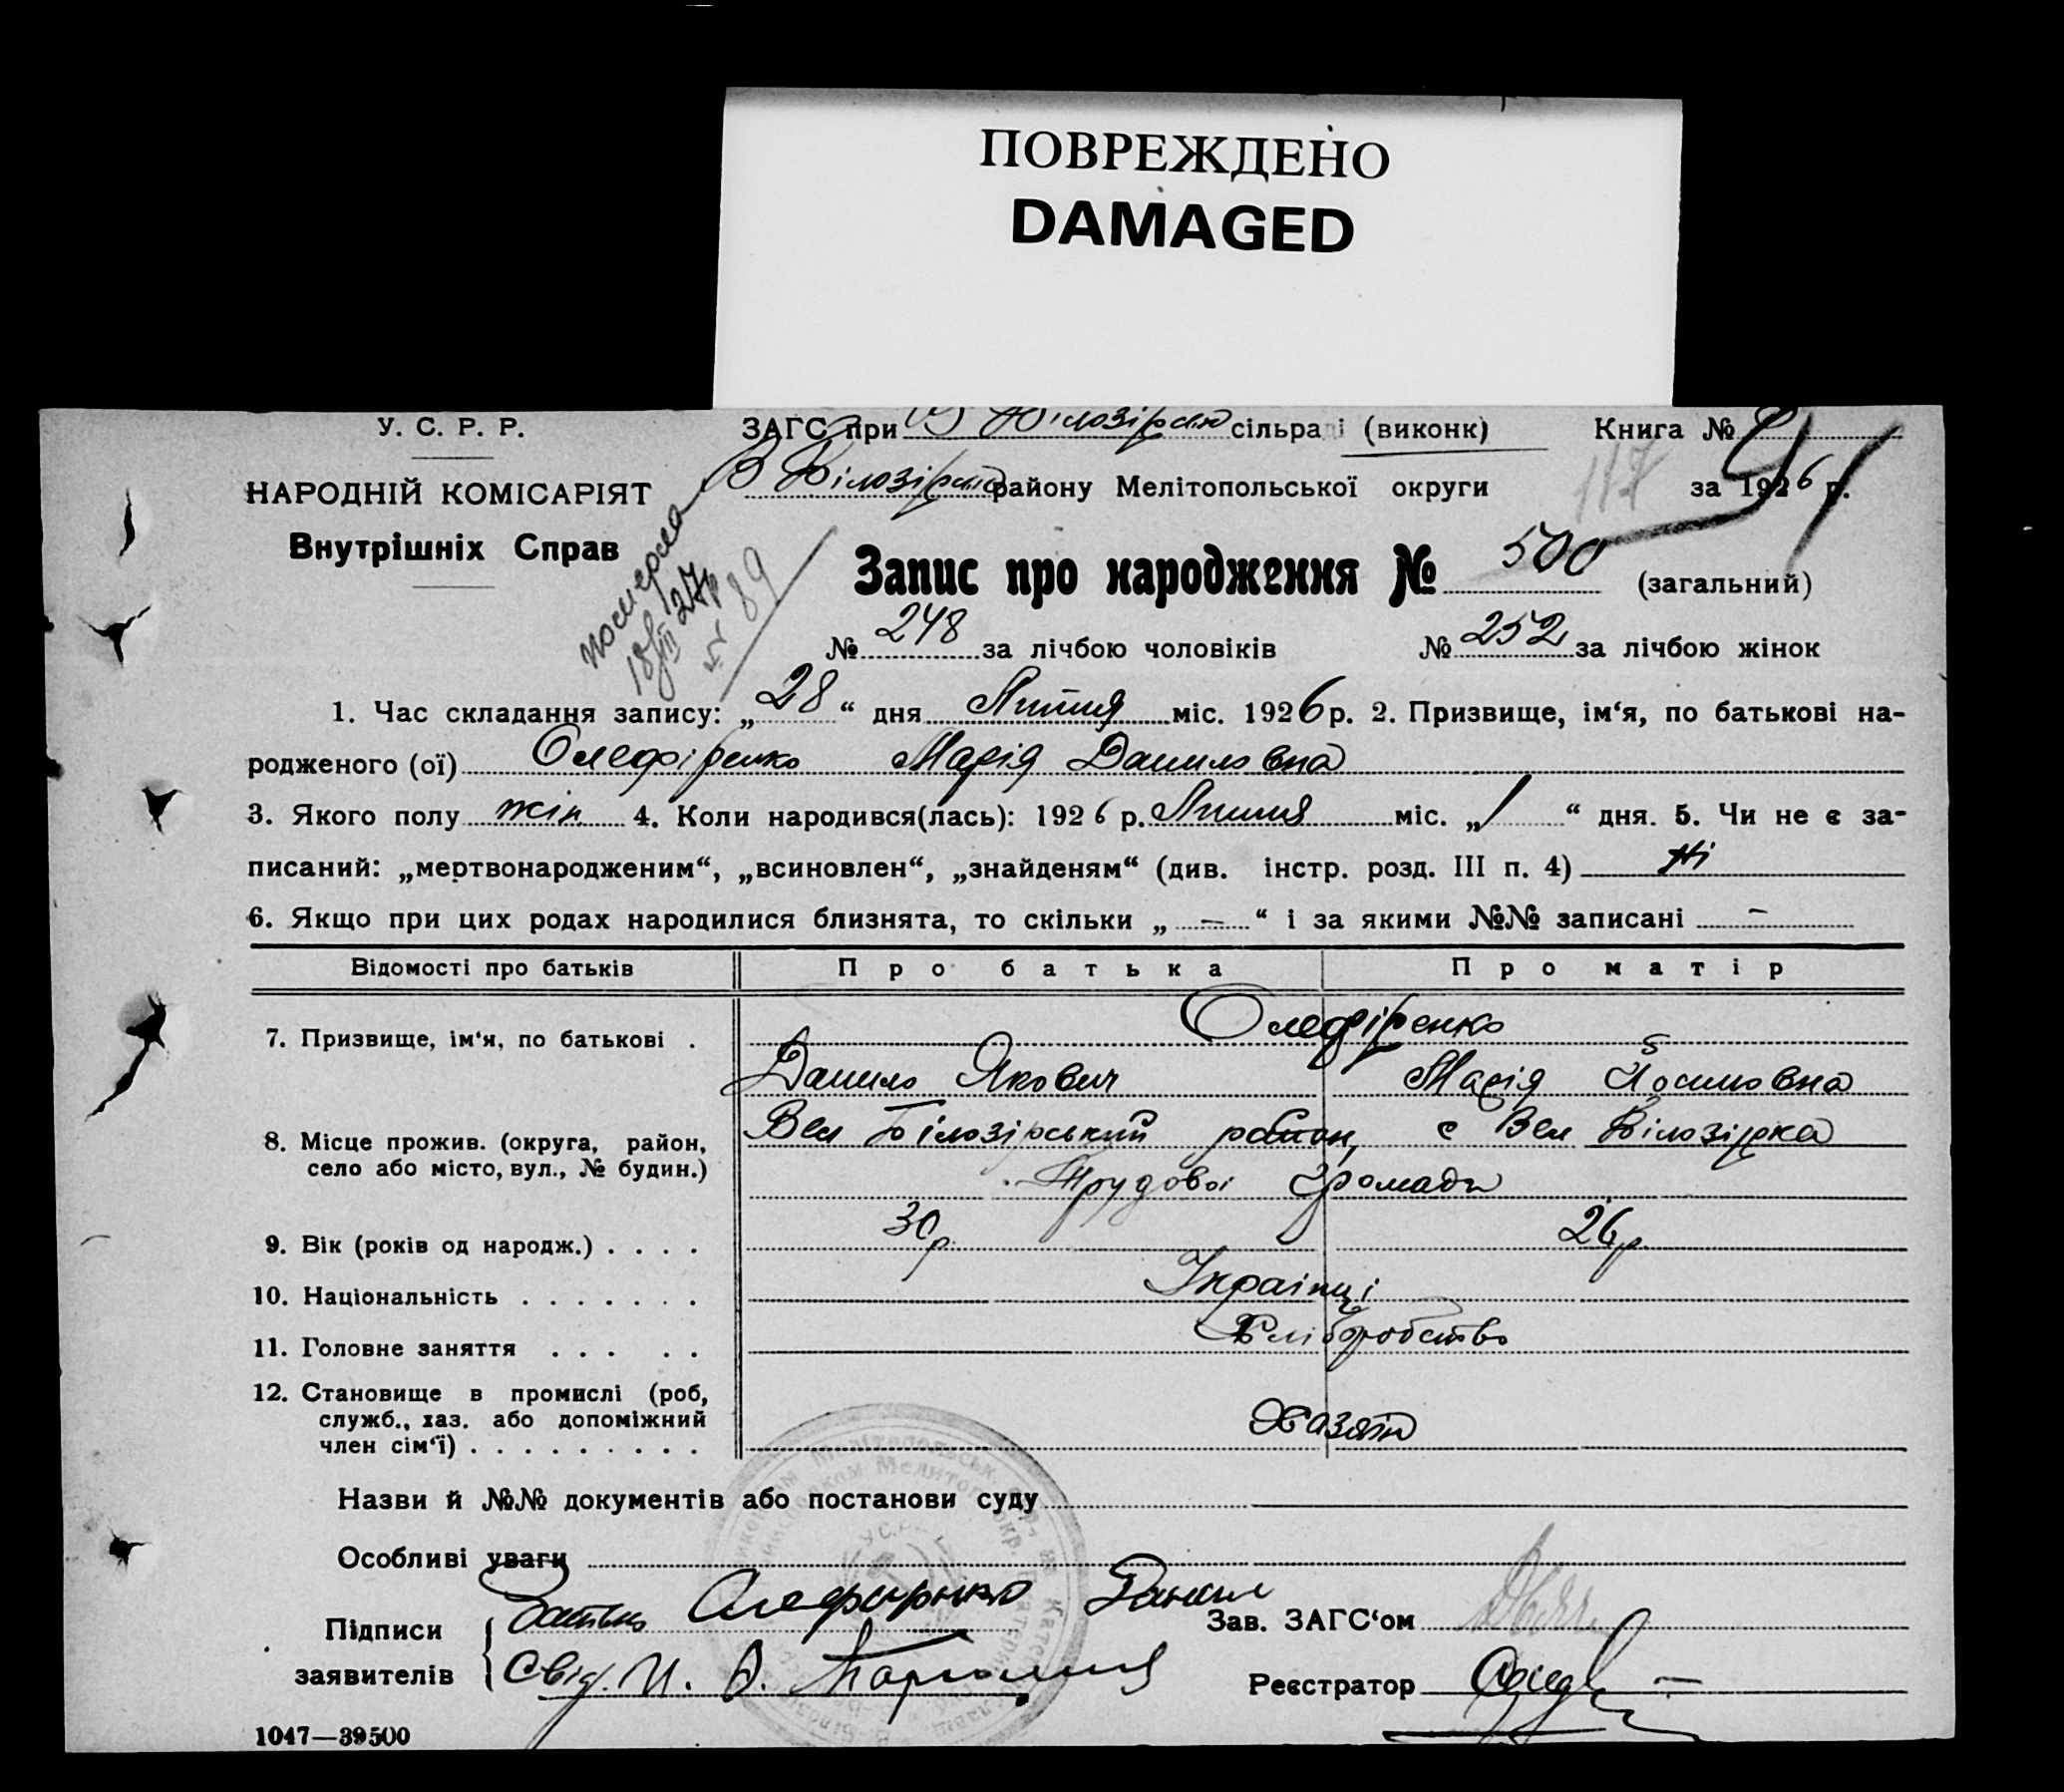 ПОВРЕЖДЕНО
DAMAGED
У. С. Р. Р.
ЗАГС при В Білозірськ сільраді (виконк)
Книга №
НАРОДНІЙ КОМІСАРІЯТ
В Білозірськ району Мелітопольської округи
117
за 1926 р.
Внутрішніх Справ
померла
18/III 27р
89
Запис про народження № 500 (загальний)
№ 248 за лічбою чоловіків
№ 252 за лічбою жінок
1. Час складання запису: „28“ дня Липня міс. 1926 р. 2. Призвище, ім‘я, по батькові на-
родженого (ої) Олефіренко Марія Даниловна
3. Якого полу жін 4. Коли народився(лась): 1926 р. Липня міс. „1“ дня. 5. Чи не є за-
писаний: „мертвонародженим“, „всиновлен“, „знайденям“ (див. інстр. розд. III п. 4) Ні
6. Якщо при цих родах народилися близнята, то скільки „ — “ і за якими №№ записані —
Відомості про батьків
Про батька
Про матір
7. Призвище, ім‘я, по батькові .
Олефіренко
Данило Якович
Марія Йосиповна
8. Місце прожив. (округа, район,
село або місто, вул., № будин.)
Вел Білозірський район, с Вел Білозірка
Трудової Громади
9. Вік (років од народж.) . . . .
30 р.
26 р.
10. Національність . . . . . . .
Українці
11. Головне заняття . . . . .
Хліборобство
12. Становище в промислі (роб,
служб., хаз. або допоміжний
член сім‘ї) . . . . . . . . .
Хазяїн
Назви й №№ документів або постанови суду
Особливі уваги
Підписи
заявителів
Батько Олефиренко Данил
Свід. И. О.
Зав. ЗАГС‘ом
Реєстратор
1047—39500